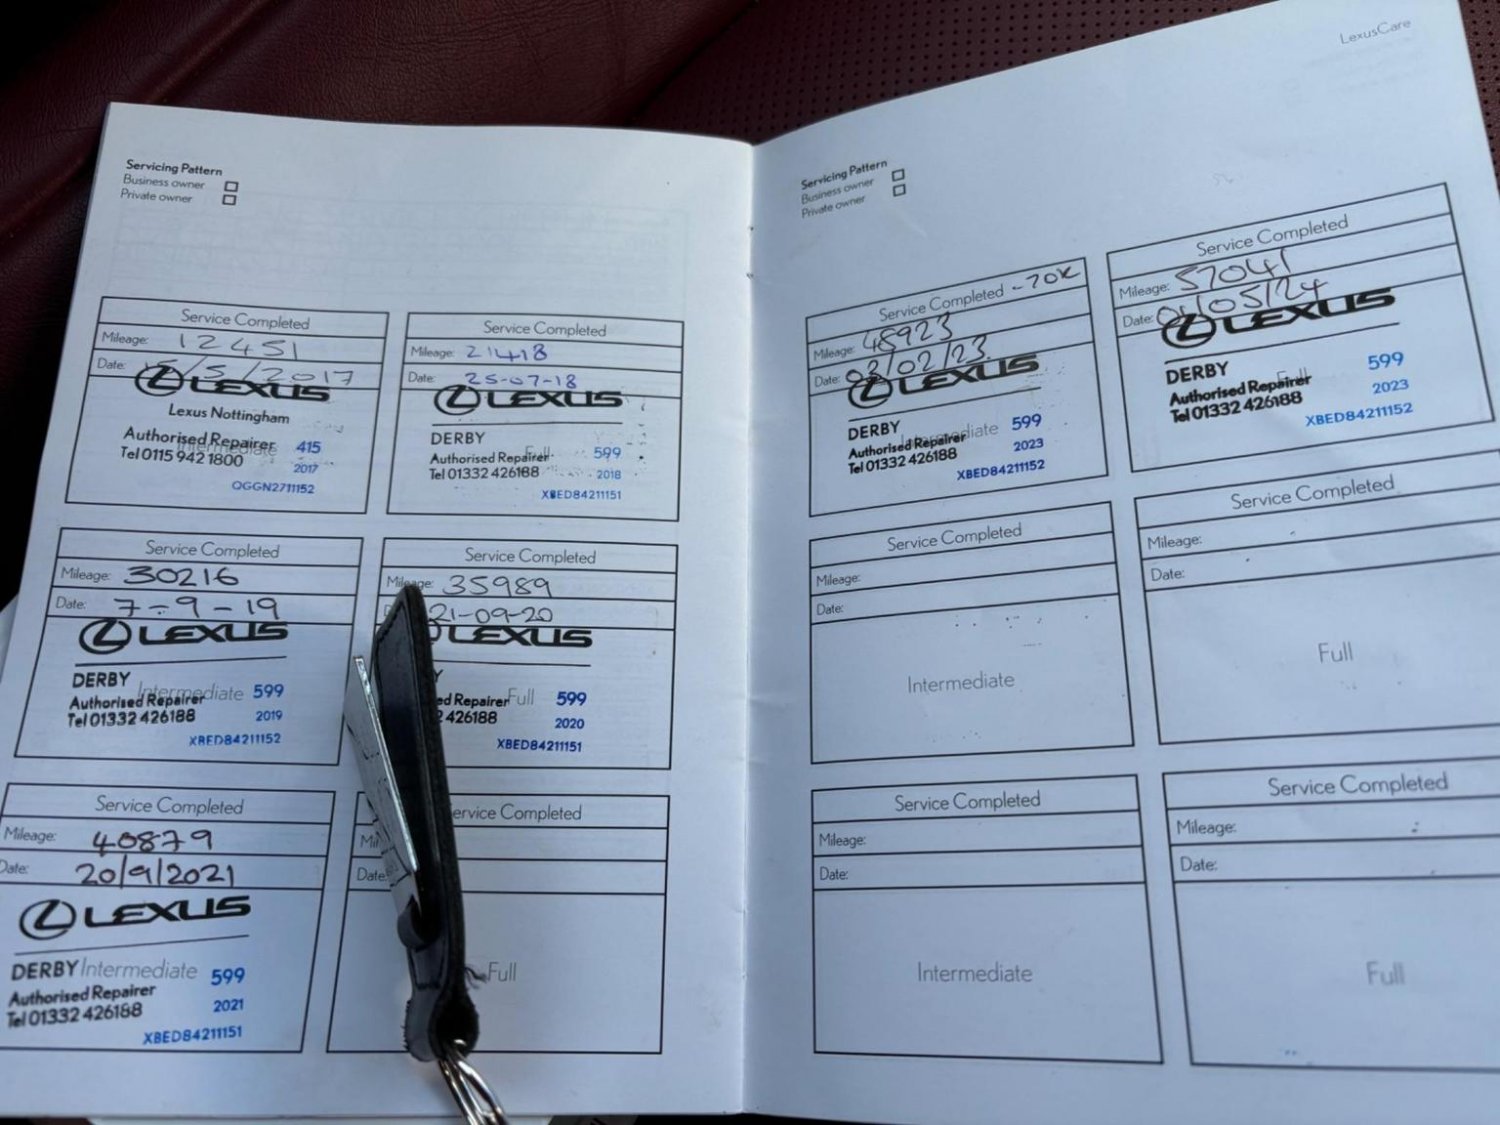 LexusCare
Servicing Pattern
Business owner
Private owner
Service Completed
Mileage: 12451
Date: 5/5/2017
LEXUS
Lexus Nottingham
Intermediate
Authorised Repairer 415
Tel 0115 942 1800 2017
QGGN2711152
Service Completed
Mileage: 21418
Date: 25-07-18
LEXUS
DERBY
Full
Authorised Repairer 599
Tel 01332 426188 2018
XBED84211151
Service Completed
Mileage: 30216
Date: 7-9-19
LEXUS
DERBY
Intermediate 599
Authorised Repairer
Tel 01332 426188 2019
XBED84211152
Service Completed
Mileage: 35989
21-09-20
LEXUS
Y
ed Repairer Full 599
2 426188 2020
XBED84211151
Service Completed
Mileage: 40879
Date: 20/9/2021
LEXUS
DERBY Intermediate 599
Authorised Repairer
Tel 01332 426188 2021
XBED84211151
ervice Completed
Mil
Date:
Full
Servicing Pattern
Business owner
Private owner
Service Completed -70K
Mileage: 48923
Date: 03/02/23
LEXUS
DERBY
Intermediate 599
Authorised Repairer
Tel 01332 426188 2023
XBED84211152
Service Completed
Mileage: 57041
Date: 01/05/24
LEXUS
DERBY 599
Full
Authorised Repairer
Tel 01332 426188 2023
XBED84211152
Service Completed
Mileage:
Date:
Intermediate
Service Completed
Mileage:
Date:
Full
Service Completed
Mileage:
Date:
Intermediate
Service Completed
Mileage:
Date:
Full